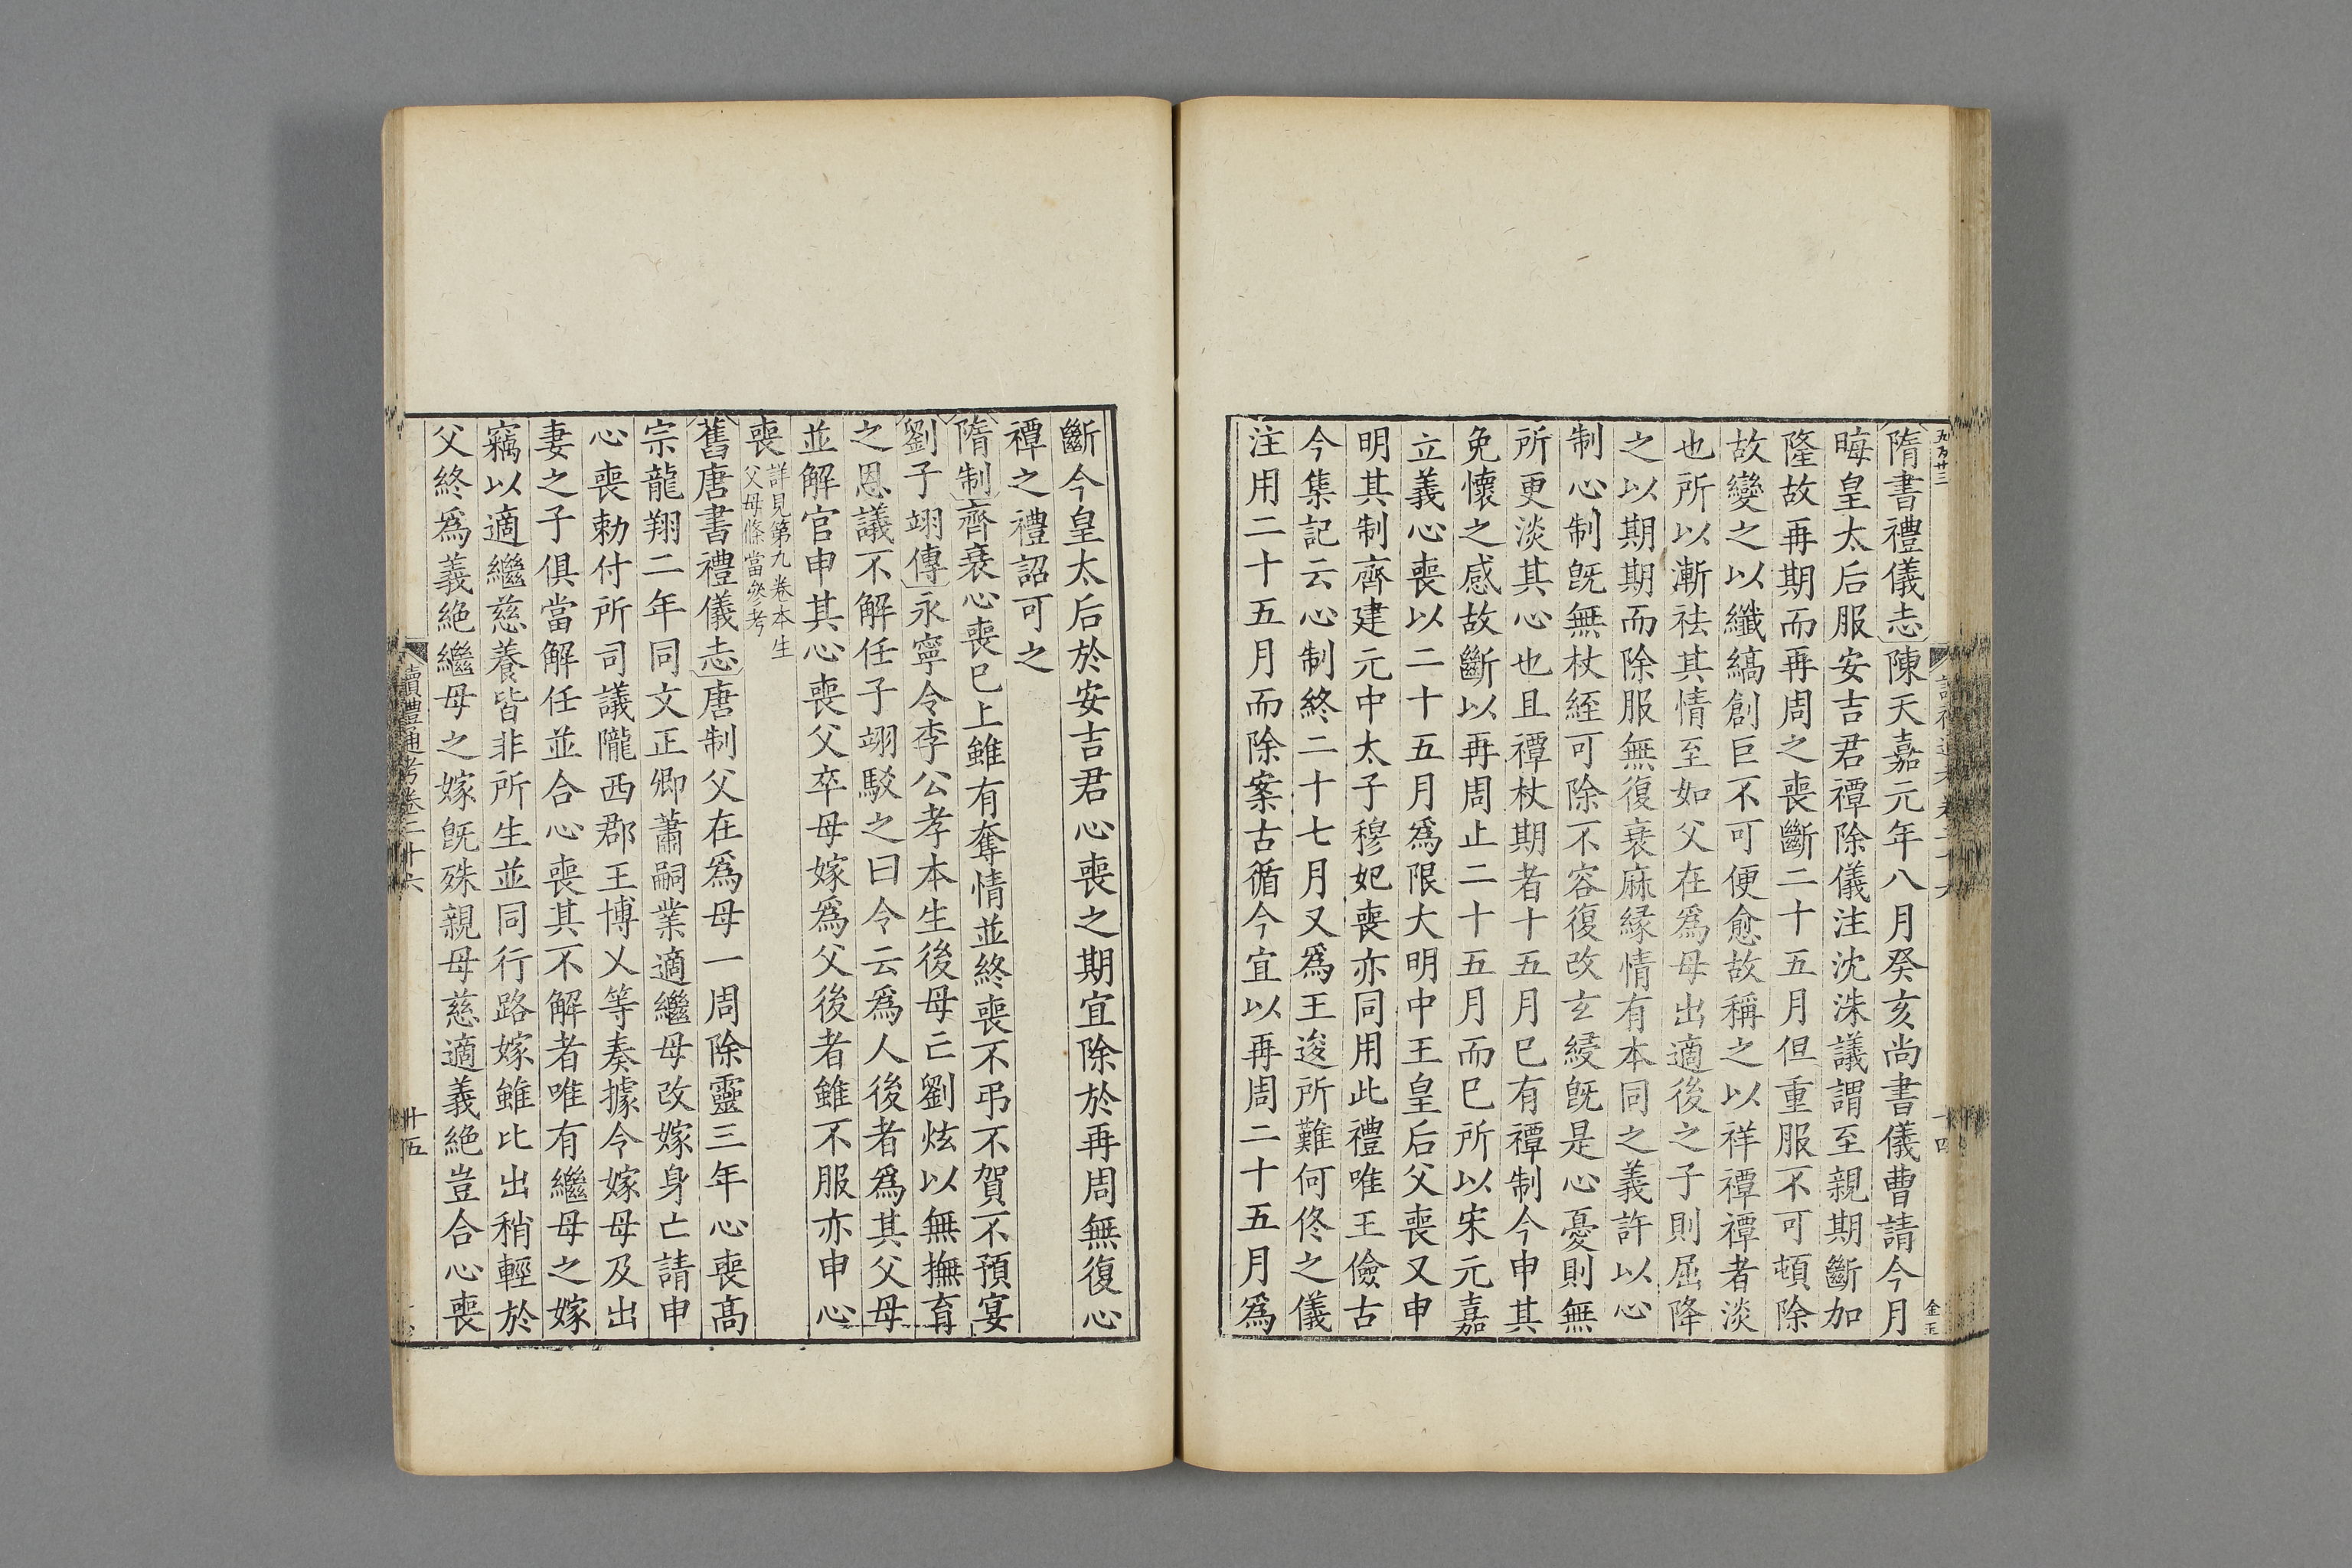 隋書禮儀志陳天嘉元年八月癸亥尚書儀曹請今月
晦皇太后服安吉君禫除儀注沈洙議謂至親期斷加
隆故再期而再周之喪斷二十五月但重服不可頓除
故變之以纖縞創巨不可便愈故稱之以祥禫禫者淡
也所以漸祛其情至如父在爲母出適後之子則屈降
之以期期而除服無復衰麻緣情有本同之義許以心
制心制旣無杖絰可除不容復改玄綅旣是心憂則無
所更淡其心也且禫杖期者十五月已有禫制今申其
免懷之感故斷以再周止二十五月而已所以宋元嘉
立義心喪以二十五月爲限大明中王皇后父喪又申
明其制齊建元中太子穆妃喪亦同用此禮唯王儉古
今集記云心制終二十七月又爲王逡所難何佟之儀
注用二十五月而除案古循今宜以再周二十五月爲
金玉
斷今皇太后於安吉君心喪之期宜除於再周無復心
禫之禮詔可之
隋制齊衰心喪已上雖有奪情並終喪不弔不賀不預宴
劉子翊傳永寧令李公孝本生後母亡劉炫以無撫育
之恩議不解任子翊駁之曰令云爲人後者爲其父母
並解官申其心喪父卒母嫁爲父後者雖不服亦申心
喪詳見第九卷本生
父母條當參考
舊唐書禮儀志唐制父在爲母一周除靈三年心喪高
宗龍翔二年同文正卿蕭嗣業適繼母改嫁身亡請申
心喪勅付所司議隴西郡王博乂等奏據令嫁母及出
妻之子俱當解任並合心喪其不解者唯有繼母之嫁
竊以適繼慈養皆非所生並同行路嫁雖比出稍輕於
父終爲義絕繼母之嫁旣殊親母慈適義絕豈合心喪
讀禮通考卷二十六
十五